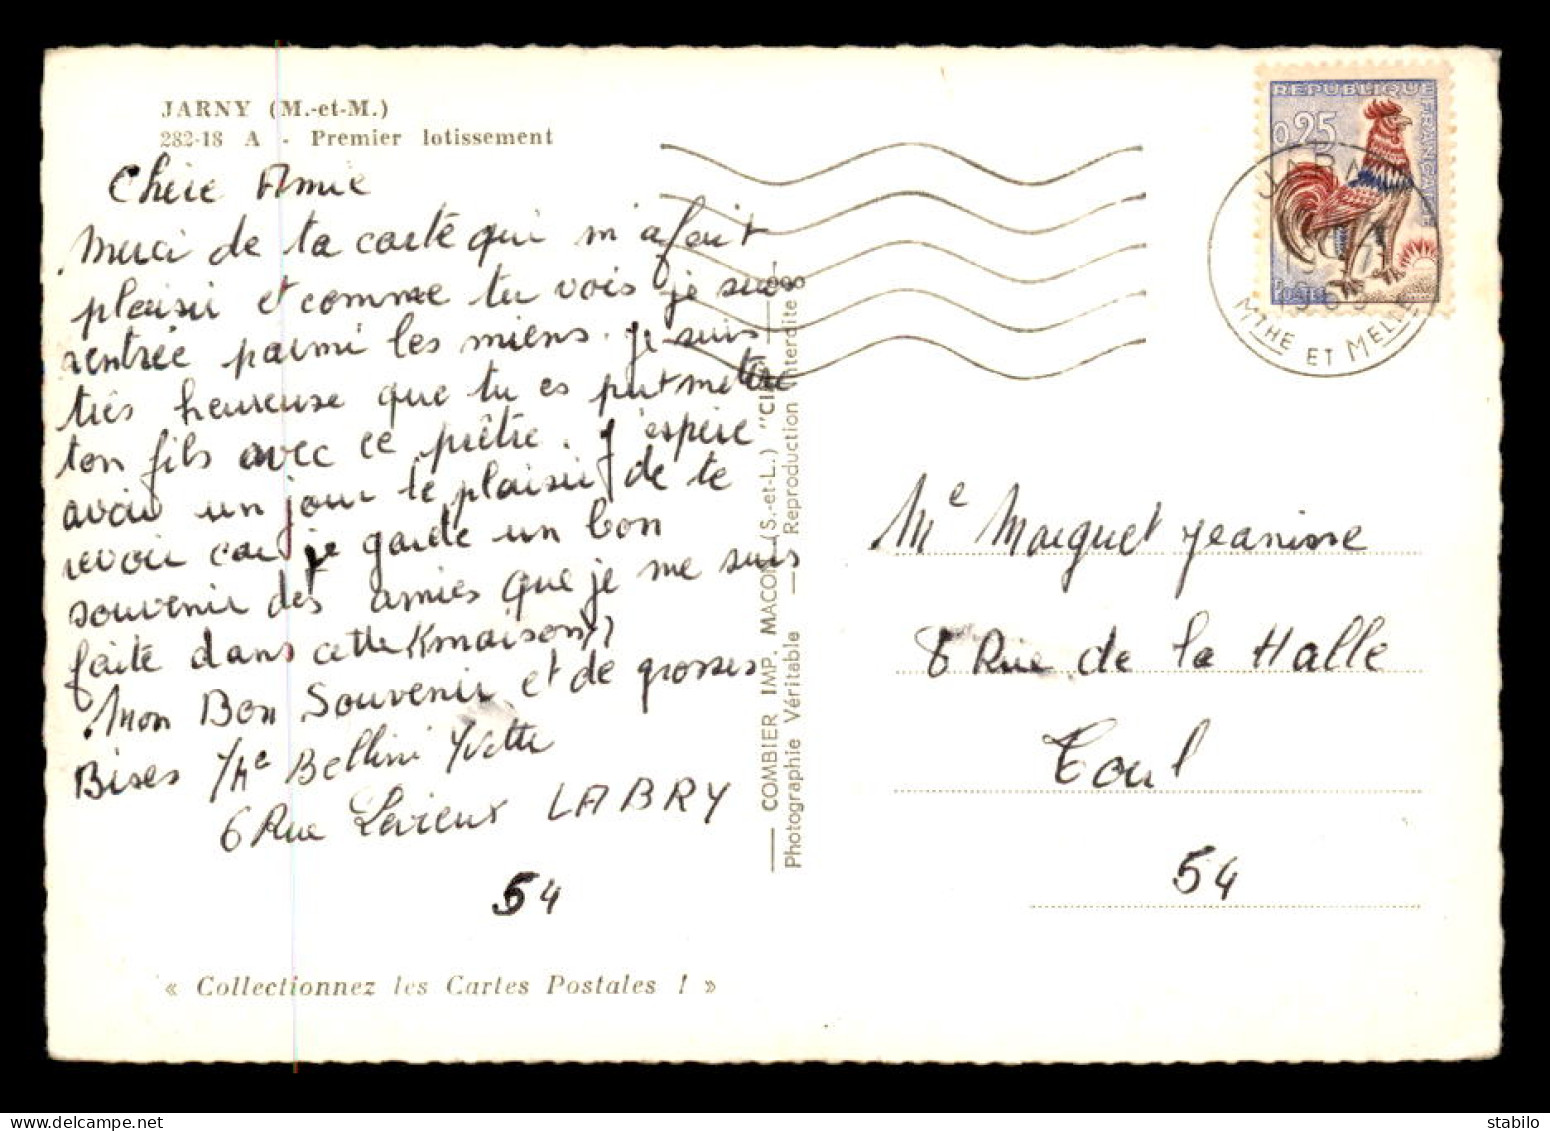 JARNY (M.-et-M.)
282-18 A - Premier lotissement
Chère Amie
Merci de ta carte qui m'a fait
plaisir et comme tu vois je suis
rentrée parmi les miens. je suis
très heureuse que tu es put metre
ton fils avec ce prêtre. J'espère
avoir un jour le plaisir de te
revoir car je garde un bon
souvenir des amies que je me suis
faite dans cette maison
Mon Bon Souvenir et de grosses
Bises Me Bellini Yvette
6 Rue Levieux LABRY
54
« Collectionnez les Cartes Postales ! »
COMBIER IMP. MACON (S.-et-L.) "CIM"
Photographie Véritable — Reproduction Interdite
REPUBLIQUE FRANÇAISE
0,25
POSTES
JARNY
MTHE ET MELLE
Me Marguet Jeanine
8 Rue de la Halle
Toul
54
stabilo